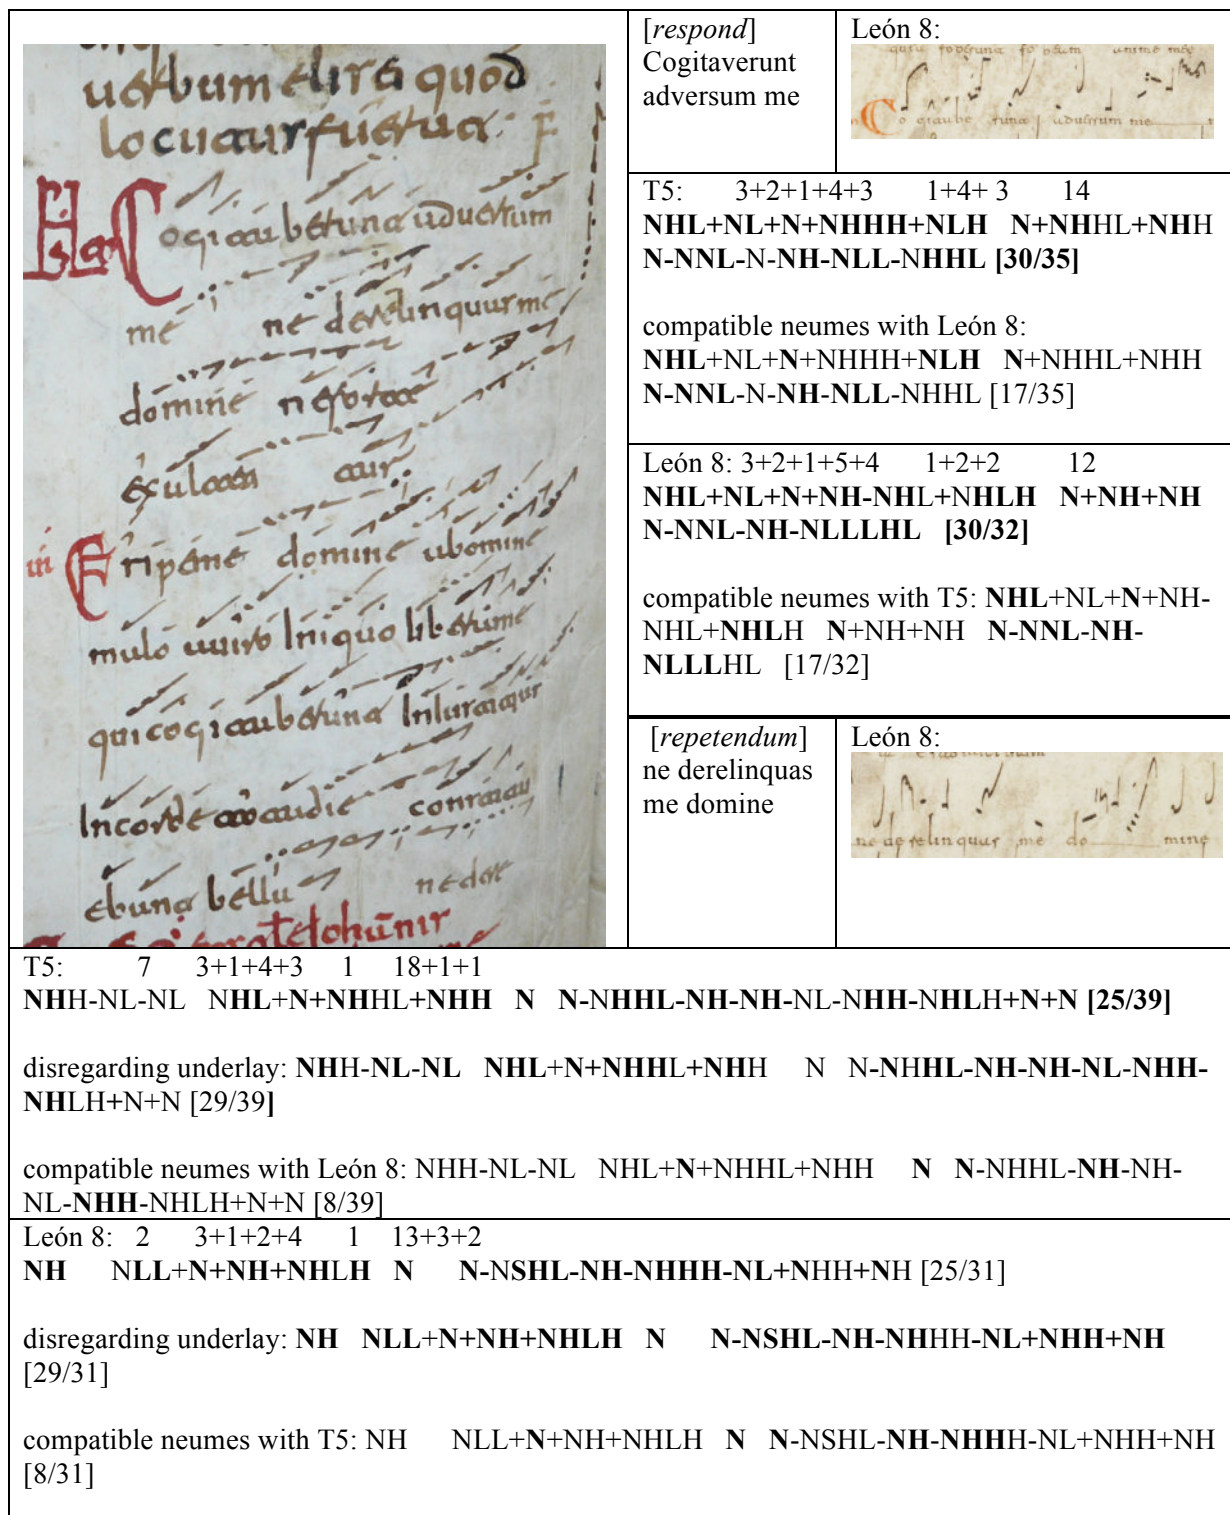 Cogitaberunt aduersum
me ne derelinquas me
domine
Eripe me domine ab omine
malo
qui cogitaberunt
In corde
ebant bella ne der
[respond]
Cogitaverunt
adversum me
León 8:
Cogitaberunt aduersum me
T5: 3+2+1+4+3 1+4+ 3 14
NHL+NL+N+NHHH+NLH N+NHHL+NHH
N-NNL-N-NH-NLL-NHHL [30/35]
compatible neumes with León 8:
NHL+NL+N+NHHH+NLH N+NHHL+NHH
N-NNL-N-NH-NLL-NHHL [17/35]
León 8: 3+2+1+5+4 1+2+2 12
NHL+NL+N+NH-NHL+NHLH N+NH+NH
N-NNL-NH-NLLLHL [30/32]
compatible neumes with T5: NHL+NL+N+NH-
NHL+NHLH N+NH+NH N-NNL-NH-
NLLLHL [17/32]
[repetendum]
ne derelinquas
me domine
León 8:
ne derelinquas me do mine
T5: 7 3+1+4+3 1 18+1+1
NHH-NL-NL NHL+N+NHHL+NHH N N-NHHL-NH-NH-NL-NHH-NHLH+N+N [25/39]
disregarding underlay: NHH-NL-NL NHL+N+NHHL+NHH N N-NHHL-NH-NH-NL-NHH-
NHLH+N+N [29/39]
compatible neumes with León 8: NHH-NL-NL NHL+N+NHHL+NHH N N-NHHL-NH-NH-
NL-NHH-NHLH+N+N [8/39]
León 8: 2 3+1+2+4 1 13+3+2
NH NLL+N+NH+NHLH N N-NSHL-NH-NHHH-NL+NHH+NH [25/31]
disregarding underlay: NH NLL+N+NH+NHLH N N-NSHL-NH-NHHH-NL+NHH+NH
[29/31]
compatible neumes with T5: NH NLL+N+NH+NHLH N N-NSHL-NH-NHHH-NL+NHH+NH
[8/31]